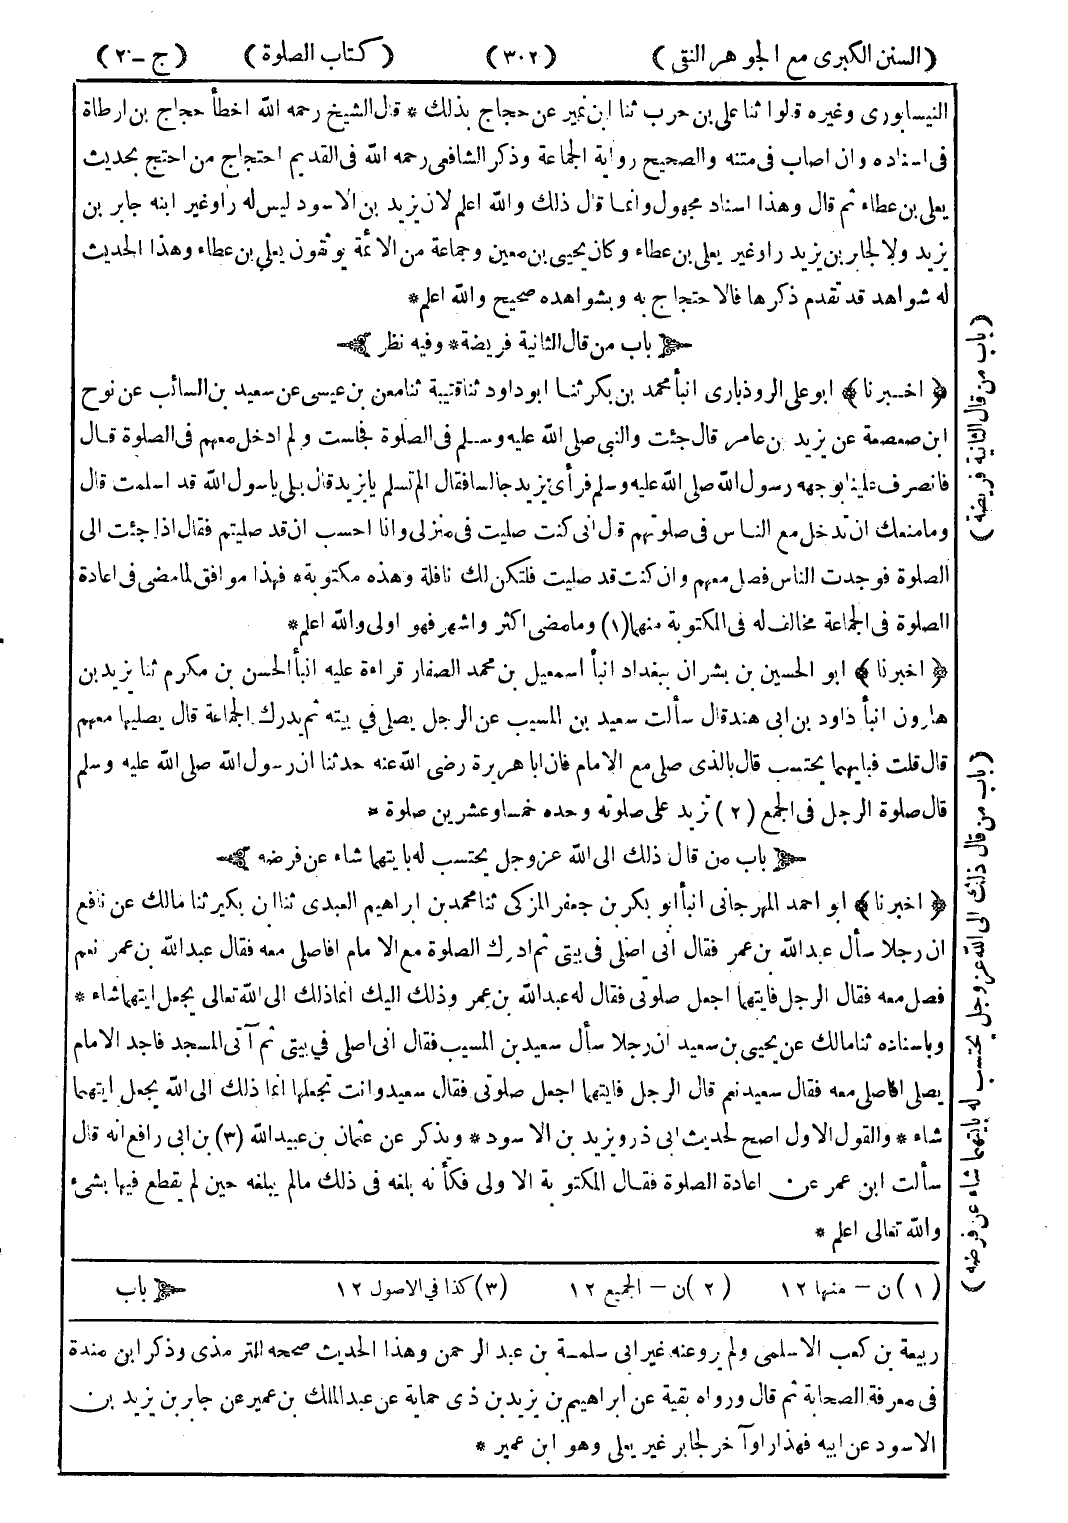 (السنن الكبرى مع الجوهر النقى) (٣٠٢) (كتاب الصلوة) (ج-٢)
النيسابورى وغيره قالوا ثنا على بن حرب ثنا ابن نمير عن حجاج بذلك * قال الشيخ رحمه الله اخطأ حجاج بن ارطاة
فى اسناده وان اصاب فى متنه والصحيح رواية الجماعة وذكر الشافعى رحمه الله فى القديم احتجاج من احتج بحديث
يعلى بن عطاء ثم قال وهذا اسناد مجهول وانما قال ذلك والله اعلم لان يزيد بن الاسود ليس له راو غير ابنه جابر بن
يزيد ولا لجابر بن يزيد راو غير يعلى بن عطاء وكان يحيى بن معين وجماعة من الائمة يوثقون يعلى بن عطاء وهذا الحديث
له شواهد قد تقدم ذكرها فالاحتجاج به وبشواهده صحيح والله اعلم*
باب من قال الثانية فريضة* وفيه نظر
﴿اخبرنا﴾ ابو على الروذبارى انبأ محمد بن بكر ثنا ابو داود ثنا قتيبة ثنا معن بن عيسى عن سعيد بن السائب عن نوح
ابن صعصعة عن يزيد بن عامر قال جئت والنبى صلى الله عليه وسلم فى الصلوة فجلست ولم ادخل معهم فى الصلوة قال
فانصرف علينا بوجهه رسول الله صلى الله عليه وسلم فرأى يزيد جالسا فقال الم تسلم يا يزيد قال بلى ياسول الله قد اسلمت قال
وما منعك ان تدخل مع الناس فى صلوتهم قال انى كنت صليت فى منزلى وانا احسب ان قد صليتم فقال اذا جئت الى
الصلوة فوجدت الناس فصل معهم وان كنت قد صليت فلتكن لك نافلة وهذه مكتوبة* فهذا موافق لما مضى فى اعادة
الصلوة فى الجماعة مخالف له فى المكتوبة منهما(١) وما مضى اكثر واشهر فهو اولى والله اعلم*
﴿اخبرنا﴾ ابو الحسين بن بشران ببغداد انبأ اسمعيل بن محمد الصفار قراءة عليه انبأ الحسن بن مكرم ثنا يزيد بن
هارون انبأ داود بن ابى هند قال سألت سعيد بن المسيب عن الرجل يصلى في بيته ثم يدرك الجماعة قال يصليها معهم
قال قلت فبايهما يحتسب قال بالذى صلى مع الامام فان ابا هريرة رضى الله عنه حدثنا ان رسول الله صلى الله عليه وسلم
قال صلوة الرجل فى الجمع (٢) تزيد على صلوته وحده خمسا وعشرين صلوة *
باب من قال ذلك الى الله عز وجل يحتسب له بايتهما شاء عن فرضه
﴿اخبرنا﴾ ابو احمد المهرجانى انبأ ابو بكر بن جعفر المزكى ثنا محمد بن ابراهيم العبدى ثنا ابن بكير ثنا مالك عن نافع
ان رجلا سأل عبدالله بن عمر فقال انى اصلى فى بيتى ثم ادرك الصلوة مع الامام افاصلى معه فقال عبدالله بن عمر نعم
فصل معه فقال الرجل فايتهما اجعل صلوتى فقال له عبدالله بن عمر وذلك اليك انما ذلك الى الله تعالى يجعل ايتهما شاء *
وباسناده ثنا مالك عن يحيى بن سعيد ان رجلا سأل سعيد بن المسيب فقال انى اصلى في بيتى ثم آتى المسجد فاجد الامام
يصلى افاصلى معه فقال سعيد نعم قال الرجل فايتهما اجعل صلوتى فقال سعيد وانت تجعلها انما ذلك الى الله يجعل ايتهما
شاء * والقول الاول اصح لحديث ابى ذر ويزيد بن الاسود * ويذكر عن عثمان بن عبيدالله (٣) بن ابى رافع انه قال
سألت ابن عمر عن اعادة الصلوة فقال المكتوبة الاولى فكأنه بلغه فى ذلك مالم يبلغه حين لم يقطع فيها بشىء
والله تعالى اعلم *
(باب من قال الثانية فريضة)
(باب من قال ذلك الى الله عز وجل يحتسب له بايتهما شاء عن فرضه)
(١) ن - منها ١٢ (٢) ن - الجميع ١٢ (٣) كذا في الاصول ١٢ باب
ربيعة بن كعب الاسلمى ولم يرو عنه غير ابى سلمة بن عبد الرحمن وهذا الحديث صححه الترمذى وذكر ابن مندة
فى معرفة الصحابة ثم قال ورواه بقية عن ابراهيم بن يزيد بن ذى حماية عن عبدالملك بن عمير عن جابر بن يزيد بن
الاسود عن ابيه فهذا راو آخر لجابر غير يعلى وهو ابن عمير *